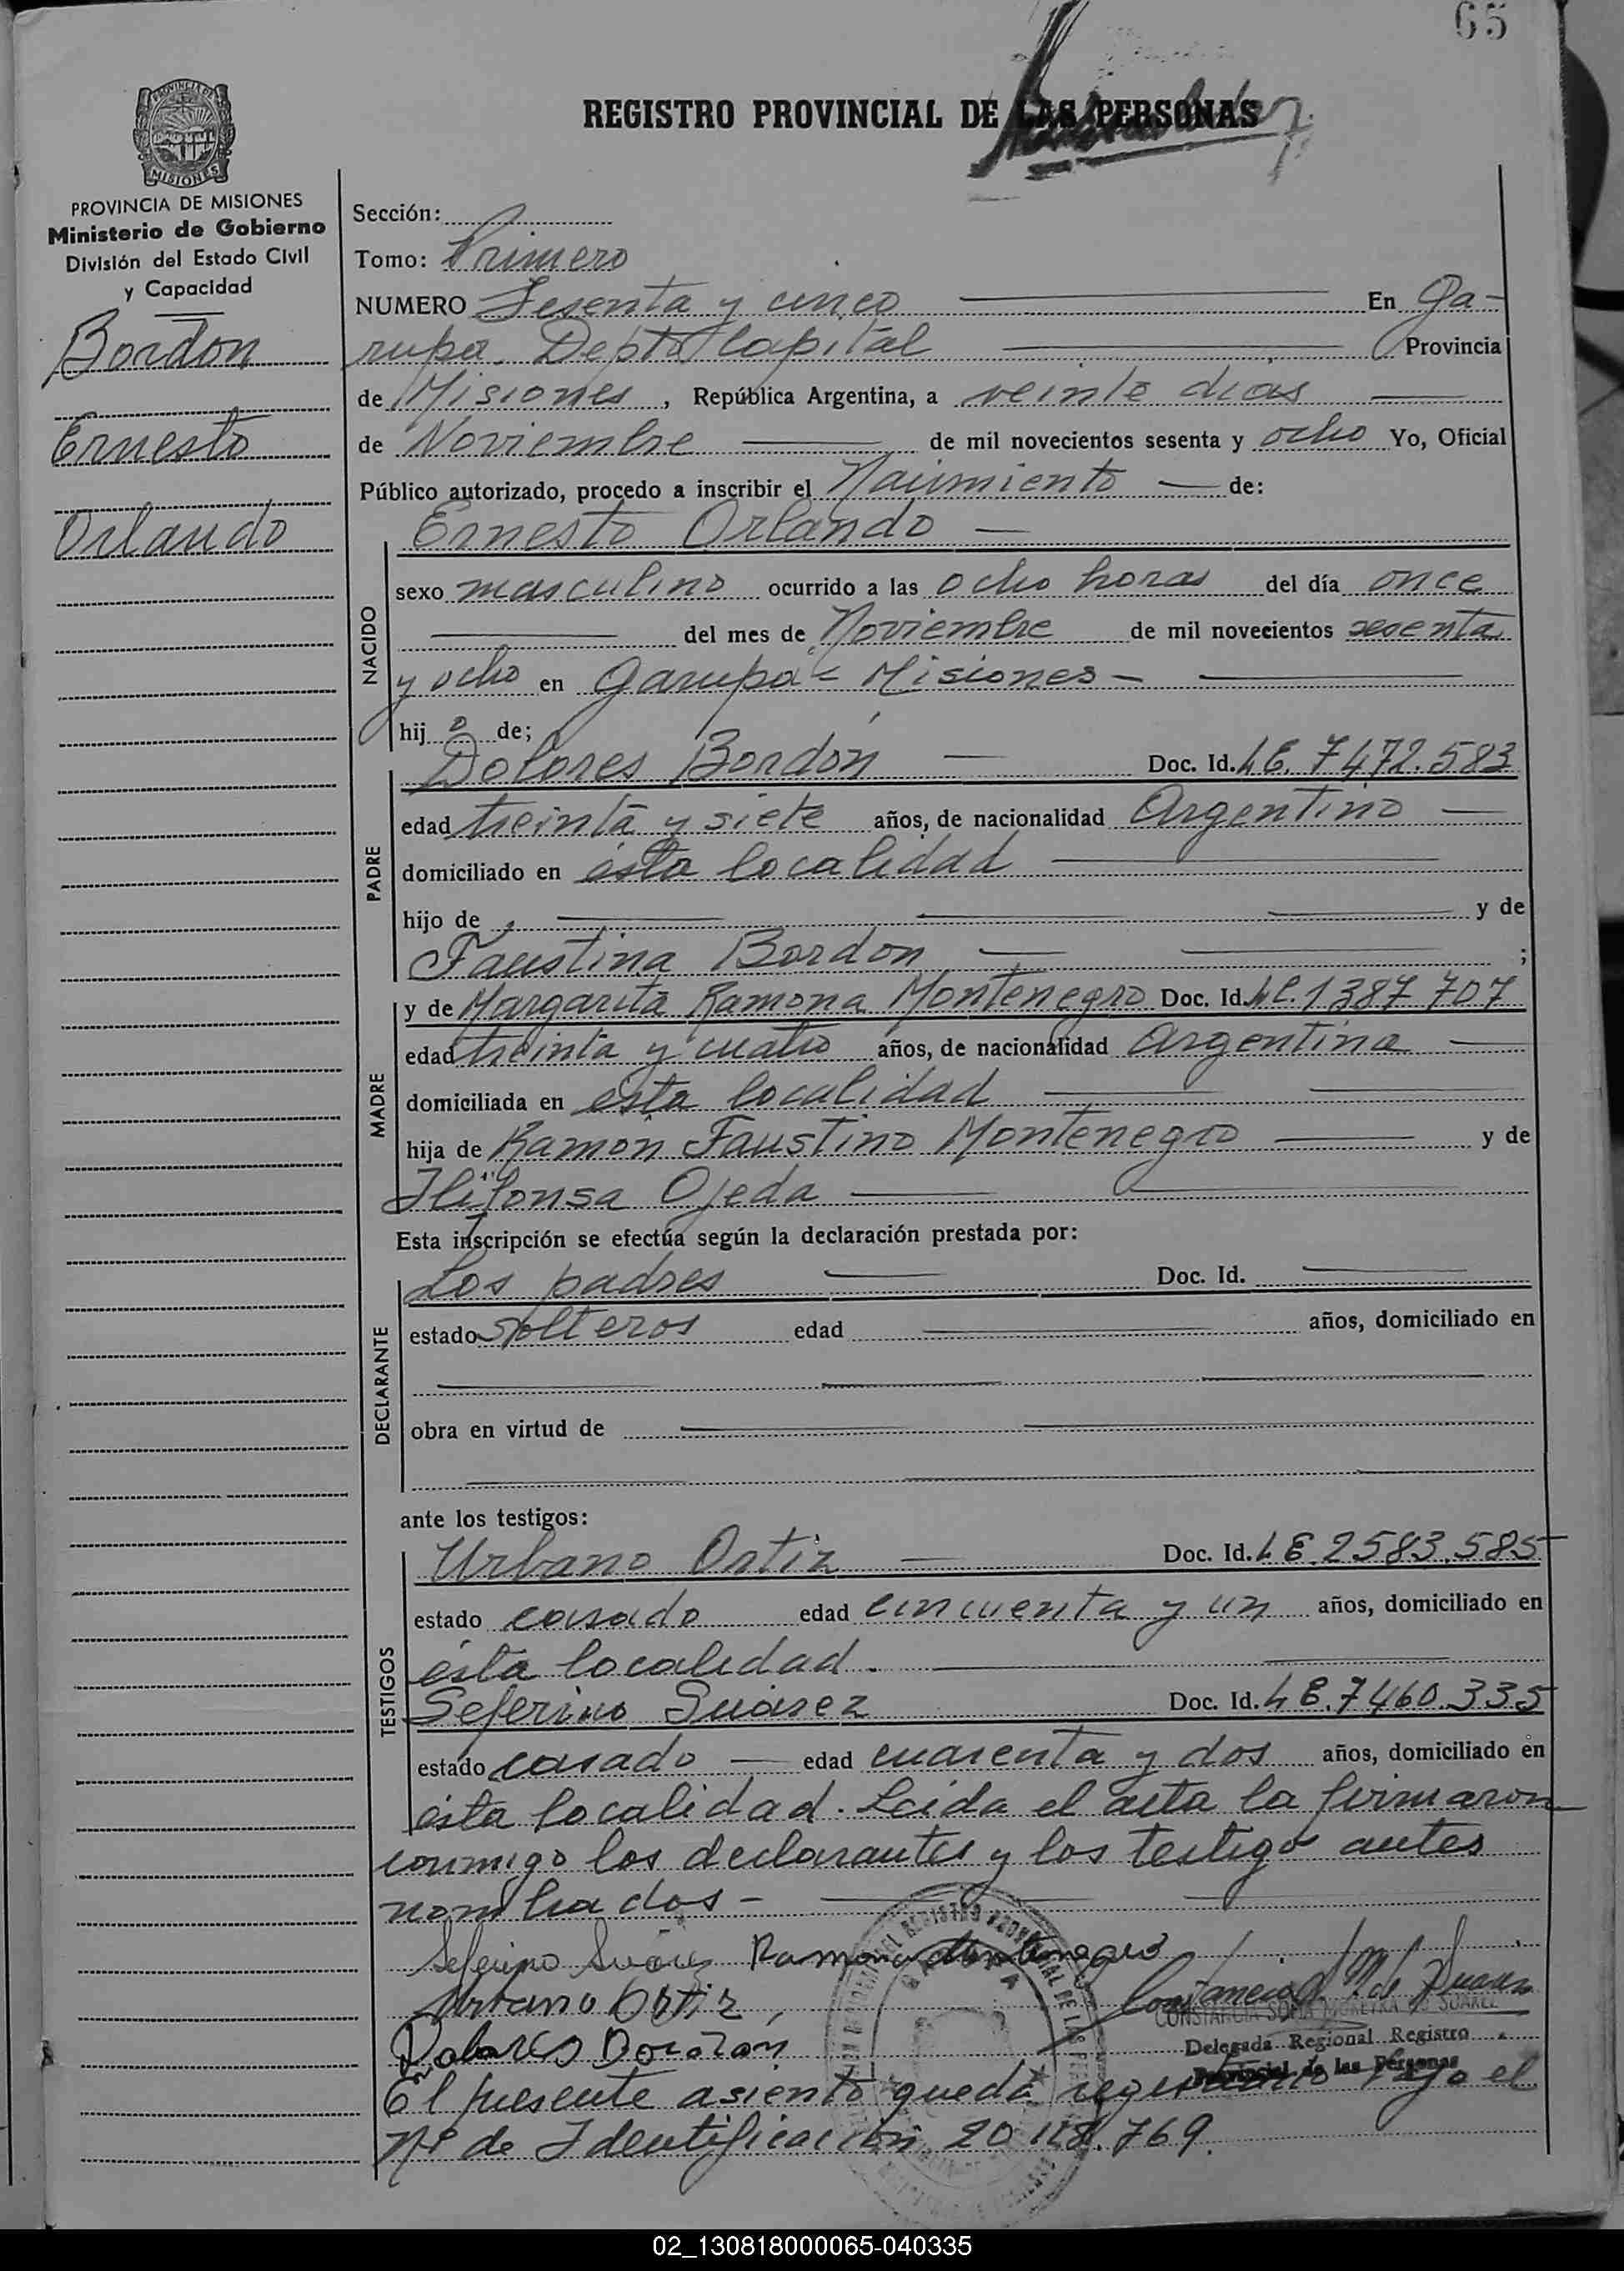 65
REGISTRO PROVINCIAL DE LAS PERSONAS
PROVINCIA DE MISIONES
Ministerio de Gobierno
División del Estado Civil
y Capacidad
Bordon
Ernesto
Orlando
Sección:
Tomo: Primero
NUMERO Sesenta y cinco En Ga-
rupa. Depto Capital Provincia
de Misiones, República Argentina, a veinte dias
de Noviembre de mil novecientos sesenta y ocho Yo, Oficial
Público autorizado, procedo a inscribir el Nacimiento de:
Ernesto Orlando
NACIDO
sexo masculino ocurrido a las ocho horas del día once
del mes de Noviembre de mil novecientos sesenta
y ocho en Garupa - Misiones -
hijo de;
PADRE
Dolores Bordón Doc. Id. LE. 7472.583
edad treinta y siete años, de nacionalidad Argentino
domiciliado en ésta localidad
hijo de y de
Faustina Bordon ;
MADRE
y de Margarita Ramona Montenegro Doc. Id. LC. 1387 707
edad treinta y cuatro años, de nacionalidad Argentina
domiciliada en ésta localidad
hija de Ramón Faustino Montenegro y de
Ilifonsa Ojeda
Esta inscripción se efectúa según la declaración prestada por:
DECLARANTE
Los padres Doc. Id.
estado solteros edad años, domiciliado en
obra en virtud de
ante los testigos:
TESTIGOS
Urbano Ortiz Doc. Id. LE. 2583.585
estado casado edad cincuenta y un años, domiciliado en
ésta localidad.
Seferino Suárez Doc. Id. LE. 7460.335
estado casado edad cuarenta y dos años, domiciliado en
ésta localidad. Leida el acta la firmaron
conmigo los declarantes y los testigos antes
nombrados -
Seferino Suárez Ramona Montenegro
Urbano Ortiz Constancia S M de Suarez
CONSTANCIA SOFIA MOREYRA DE SUAREZ
Dolores Bordón Delegada Regional Registro
Provincial de las Personas
El presente asiento queda registrado bajo el
Nº de Identificación 20 118.769.
02_130818000065-040335